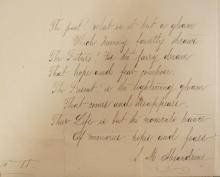 The past! what is it but a gleam
Which memory faintly throws
The Future! 'tis the fairy dream
That hope and fear compose.
The Present! is the lightening gleam
That comes and disappears
This Life is but the moment's pause
Of memories hopes and fears
S. M.